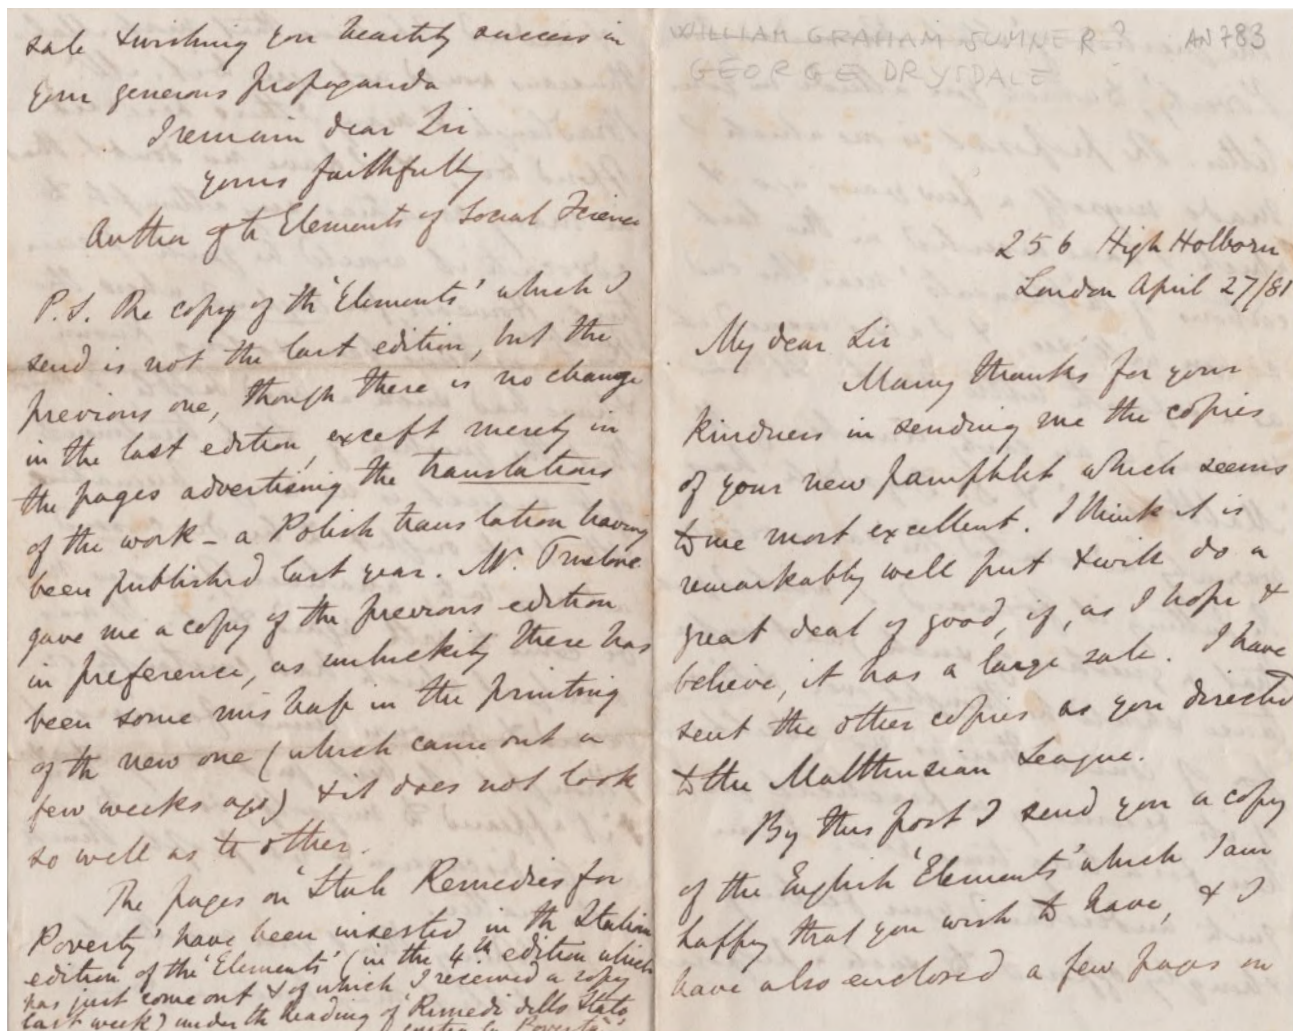 sale & wishing you heartily success in
your generous propaganda
I remain dear Sir
yours faithfully
Author of th Elements of Social Science
P.S. The copy of th 'Elements' which I
send is not the last edition, but the
previous one, though there is no change
in the last edition, except merely in
the pages advertising the translations
of the work – a Polish translation having
been published last year. Mr. Truelove
gave me a copy of the previous edition
in preference, as unluckily there has
been some mishap in the printing
of th new one (which came out a
few weeks ago) & it does not look
so well as th other.
The pages on 'State Remedies for
Poverty' have been inserted in th Italian
edition of the 'Elements' (in the 4th edition which
has just come out & of which I received a copy
last week) under th heading of 'Rimedi dello Stato
contro la Povertà'
WILLIAM GRAHAM SUMNER? AN783
GEORGE DRYSDALE
256 High Holborn
London April 27/81
My dear Sir
Many thanks for your
kindness in sending me the copies
of your new pamphlet which seems
to me most excellent. I think it is
remarkably well put & will do a
great deal of good, if, as I hope &
believe, it has a large sale. I have
sent the other copies as you directed
to the Malthusian League.
By this post I send you a copy
of the English 'Elements' which I am
happy that you wish to have, & I
have also enclosed a few pages on